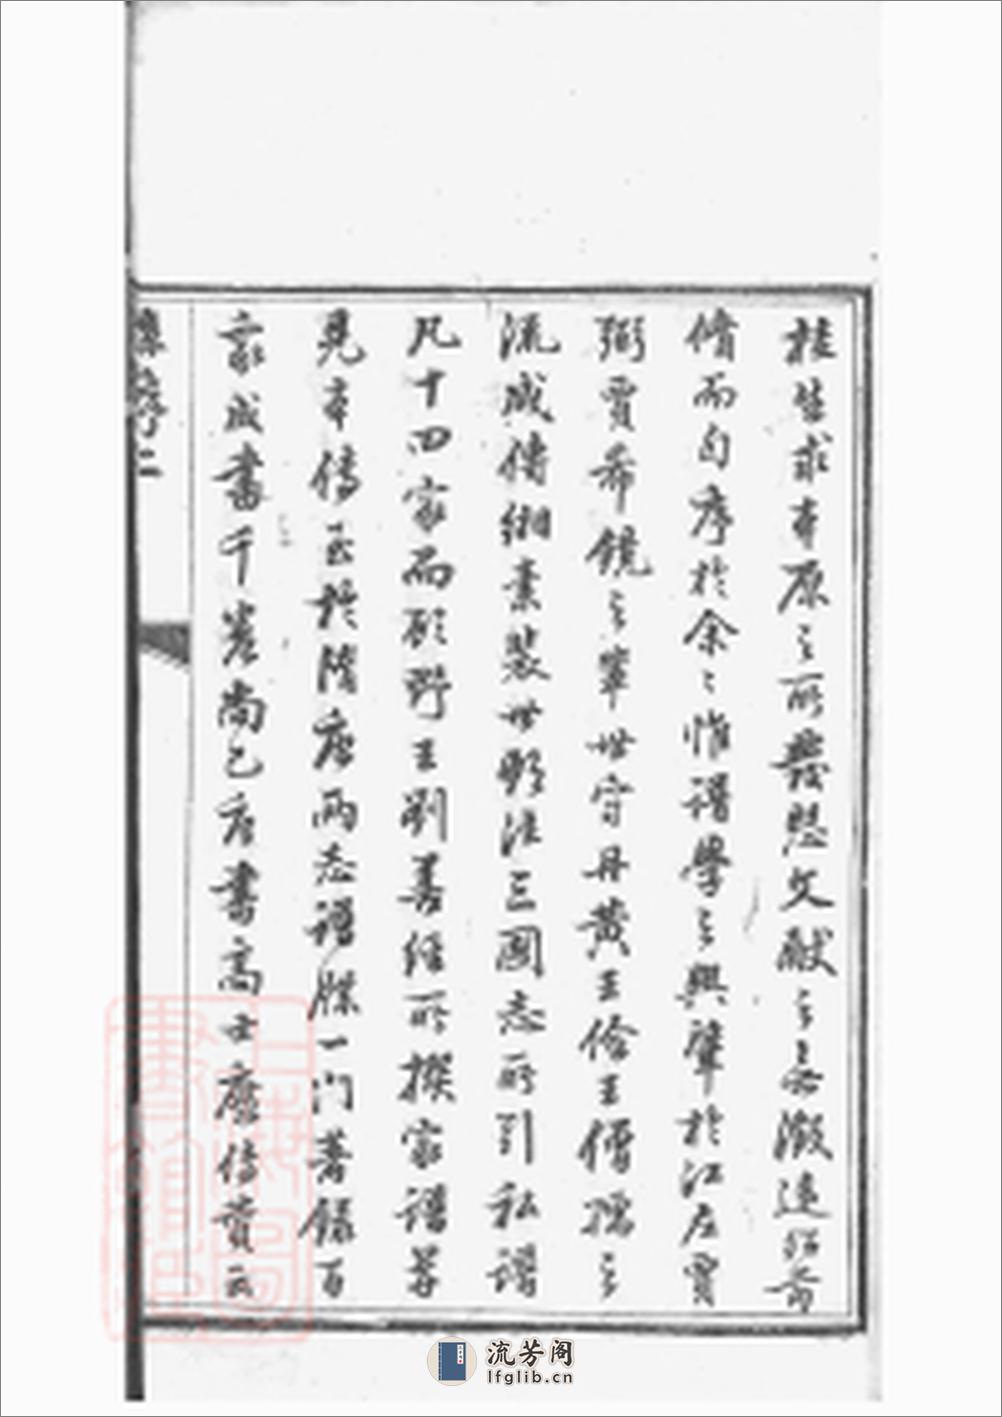 桂生求本原之所發愁文獻之無激遠紹希
脩而自序於余々惟譜學之興肇於江左賈
弼賈希鏡之輩世守丹黃王儉王僧孺之
流咸傳緗素裴世期注三國志所引私譜
凡十四家而顧野王劉善經所撰家譜等
見本傳至於隋唐兩志譜牒一門著錄百
家成書千卷尚已唐書高士廉傳賛云
序二
流芳阁
lfglib.cn